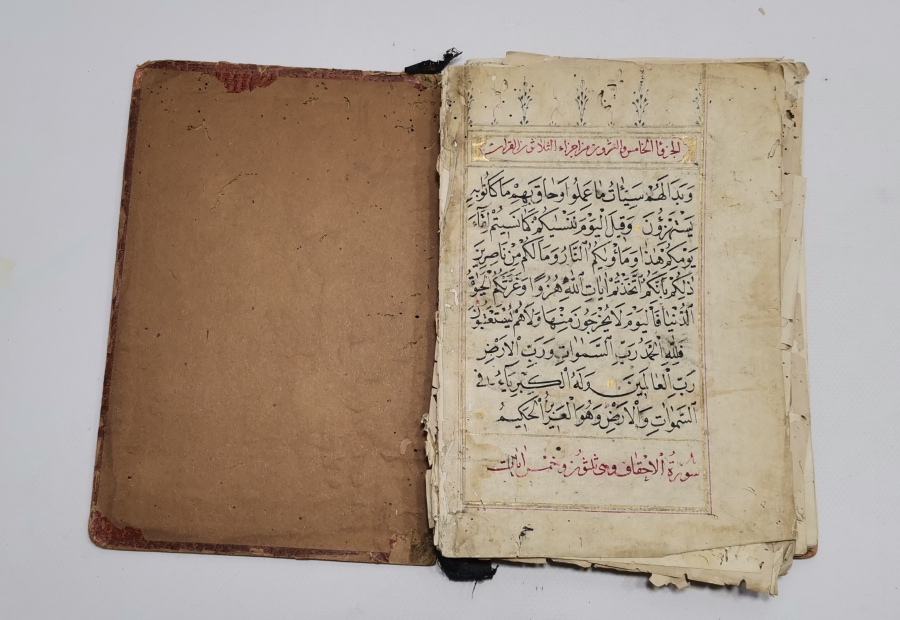 الجزء الخامس والعشرون من اجزاء الثلاثين القران
وَبَدَا لَهُمْ سَيِّئَاتُ مَا عَمِلُوا وَحَاقَ بِهِمْ مَا كَانُوا بِهِ
يَسْتَهْزِؤُنَ وَقِيلَ الْيَوْمَ نَنْسٰيكُمْ كَمَا نَسِيتُمْ لِقَاءَ
يَوْمِكُمْ هٰذَا وَمَأْوٰيكُمُ النَّارُ وَمَا لَكُمْ مِنْ نَاصِرِينَ
ذٰلِكُمْ بِاَنَّكُمُ اتَّخَذْتُمْ اٰيَاتِ اللّٰهِ هُزُوًا وَغَرَّتْكُمُ الْحَيٰوةُ
الدُّنْيَا فَالْيَوْمَ لَا يُخْرَجُونَ مِنْهَا وَلَا هُمْ يُسْتَعْتَبُونَ
فَلِلّٰهِ الْحَمْدُ رَبِّ السَّمٰوَاتِ وَرَبِّ الْاَرْضِ
رَبِّ الْعَالَمِينَ وَلَهُ الْكِبْرِيَاءُ فِي
السَّمٰوَاتِ وَالْاَرْضِ وَهُوَ الْعَزِيزُ الْحَكِيمُ
سُورَةُ الْاَحْقَافِ وَهِيَ ثلثون وَخَمْس اٰيَات